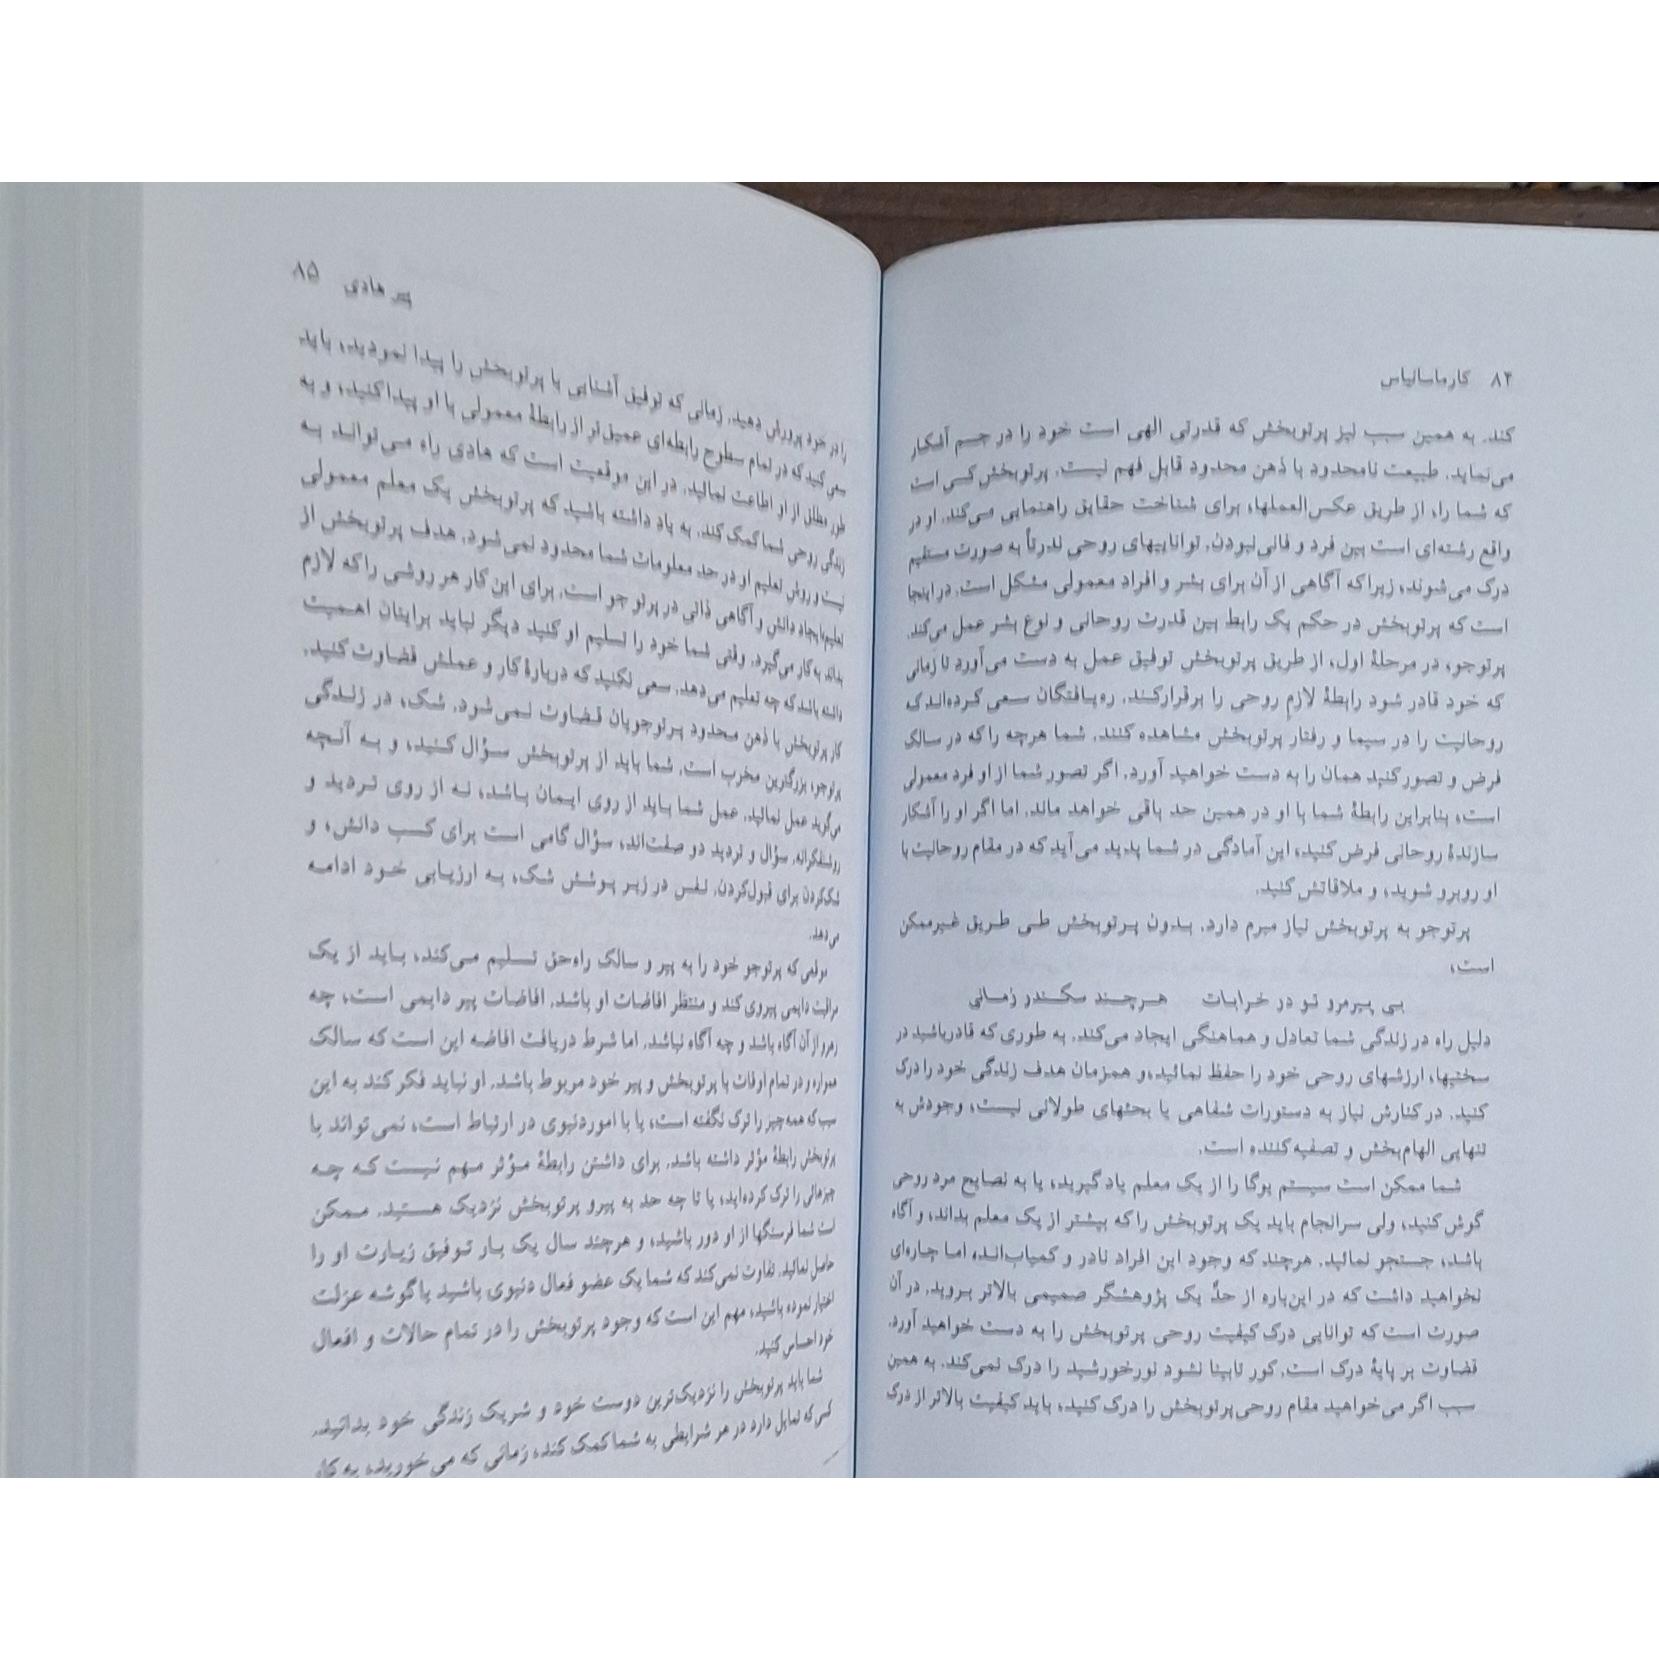 ۸۴ کارماسانیاس
کند. به همین سبب نیز پرتوبخش که قدرتی الهی است خود را در جسم آشکار
می‌نماید. طبیعت نامحدود با ذهن محدود قابل فهم نیست. پرتوبخش کسی است
که شما را، از طریق عکس‌العملها، برای شناخت حقایق راهنمایی می‌کند. او در
واقع رشته‌ای است بین فرد و فانی‌نبودن. تواناییهای روحی ندرتاً به صورت مستقیم
درک می‌شوند، زیرا که آگاهی از آن برای بشر و افراد معمولی مشکل است. در اینجا
است که پرتوبخش در حکم یک رابط بین قدرت روحانی و نوع بشر عمل می‌کند.
پرتوجو، در مرحلهٔ اول، از طریق پرتوبخش توفیق عمل به دست می‌آورد تا زمانی
که خود قادر شود رابطهٔ لازم روحی را برقرار کند. ره‌یافتگان سعی کرده‌اند که
روحانیت را در سیما و رفتار پرتوبخش مشاهده کنند. شما هرچه را که در سالک
فرض و تصور کنید همان را به دست خواهید آورد. اگر تصور شما از او فرد معمولی
است، بنابراین رابطهٔ شما با او در همین حد باقی خواهد ماند. اما اگر او را آشکار
سازندهٔ روحانی فرض کنید، این آمادگی در شما پدید می‌آید که در مقام روحانیت با
او روبرو شوید، و ملاقاتش کنید.
پرتوجو به پرتوبخش نیاز مبرم دارد. بدون پرتوبخش طی طریق غیرممکن
است،
بی پیرمرو تو در خرابات هرچند سکندر زمانی
دلیل راه در زندگی شما تعادل و هماهنگی ایجاد می‌کند. به طوری که قادرباشید در
سختیها، ارزشهای روحی خود را حفظ نمائید، و همزمان هدف زندگی خود را درک
کنید. در کنارش نیاز به دستورات شفاهی یا بحثهای طولانی نیست، وجودش به
تنهایی الهام‌بخش و تصفیه‌کننده است.
شما ممکن است سیستم یوگا را از یک معلم یاد گیرید، یا به نصایح مرد روحی
گوش کنید، ولی سرانجام باید یک پرتوبخش را که بیشتر از یک معلم بداند، و آگاه
باشد، جستجو نمائید. هرچند که وجود این افراد نادر و کمیاب‌اند، اما چاره‌ای
نخواهید داشت که در این‌باره از حدّ یک پژوهشگر صمیمی بالاتر بروید. در آن
صورت است که توانایی درک کیفیت روحی پرتوبخش را به دست خواهید آورد.
قضاوت بر پایهٔ درک است. کور نابینا نشود نورخورشید را درک نمی‌کند. به همین
سبب اگر می‌خواهید مقام روحی پرتوبخش را درک کنید، باید کیفیت بالاتر از درک
پیر هادی ۸۵
را در خود پرورش دهید. زمانی که توفیق آشنایی با پرتوبخش را پیدا نمودید، باید
سعی کنید که در تمام سطوح رابطه‌ای عمیق‌تر از رابطهٔ معمولی با او پیدا کنید، و به
طور مطلق از او اطاعت نمائید. در این موقعیت است که هادی راه می‌تواند به
زندگی روحی شما کمک کند. به یاد داشته باشید که پرتوبخش یک معلم معمولی
نیست و روش تعلیم او در حد معلومات شما محدود نمی‌شود. هدف پرتوبخش از
تعلیم، ایجاد دانش و آگاهی ذاتی در پرتوجو است. برای این کار هر روشی را که لازم
بداند به کار می‌گیرد. وقتی شما خود را تسلیم او کنید دیگر نباید برایتان اهمیت
داشته باشد که چه تعلیم می‌دهد. سعی نکنید که دربارهٔ کار و عملش قضاوت کنید.
کار پرتوبخش با ذهن محدود پرتوجویان قضاوت نمی‌شود. شک، در زندگی
پرتوجو، بزرگترین مخرب است. شما باید از پرتوبخش سؤال کنید، و به آنچه
می‌گوید عمل نمائید. عمل شما باید از روی ایمان باشد، نه از روی تردید و
روشنفکرانه. سؤال و تردید دو صفت‌اند، سؤال گامی است برای کسب دانش، و
شک‌کردن برای قبول‌کردن. نفس در زیر پوشش شک، به ارزیابی خود ادامه
می‌دهد.
که پرتوجو خود را به پیر و سالک راه‌حق تسلیم می‌کند، باید از یک
مراقبت دایمی پیروی کند و منتظر افاضات او باشد. افاضات پیر دایمی است، چه
رهرو از آن آگاه باشد و چه آگاه نباشد. اما شرط دریافت افاضه این است که سالک
همواره و در تمام اوقات با پرتوبخش و پیر خود مربوط باشد. او نباید فکر کند به این
سبب که همه‌چیز را ترک نگفته است، یا با اموردنیوی در ارتباط است، نمی‌تواند با
پرتوبخش رابطهٔ مؤثر داشته باشد. برای داشتن رابطهٔ مؤثر مهم نیست که چه
چیزهائی را ترک کرده‌اید، یا تا چه حد به پیرو پرتوبخش نزدیک هستید. ممکن
است شما فرسنگها از او دور باشید، و هرچند سال یک بار توفیق زیارت او را
حاصل نمائید. تفاوت نمی‌کند که شما یک عضو فعال دنیوی باشید یا گوشه عزلت
اختیار نموده باشید، مهم این است که وجود پرتوبخش را در تمام حالات و افعال
خود احساس کنید.
شما باید پرتوبخش را نزدیک‌ترین دوست خود و شریک زندگی خود بدانید.
کسی که تمایل دارد در هر شرایطی به شما کمک کند، زمانی که می‌خورید، به کار